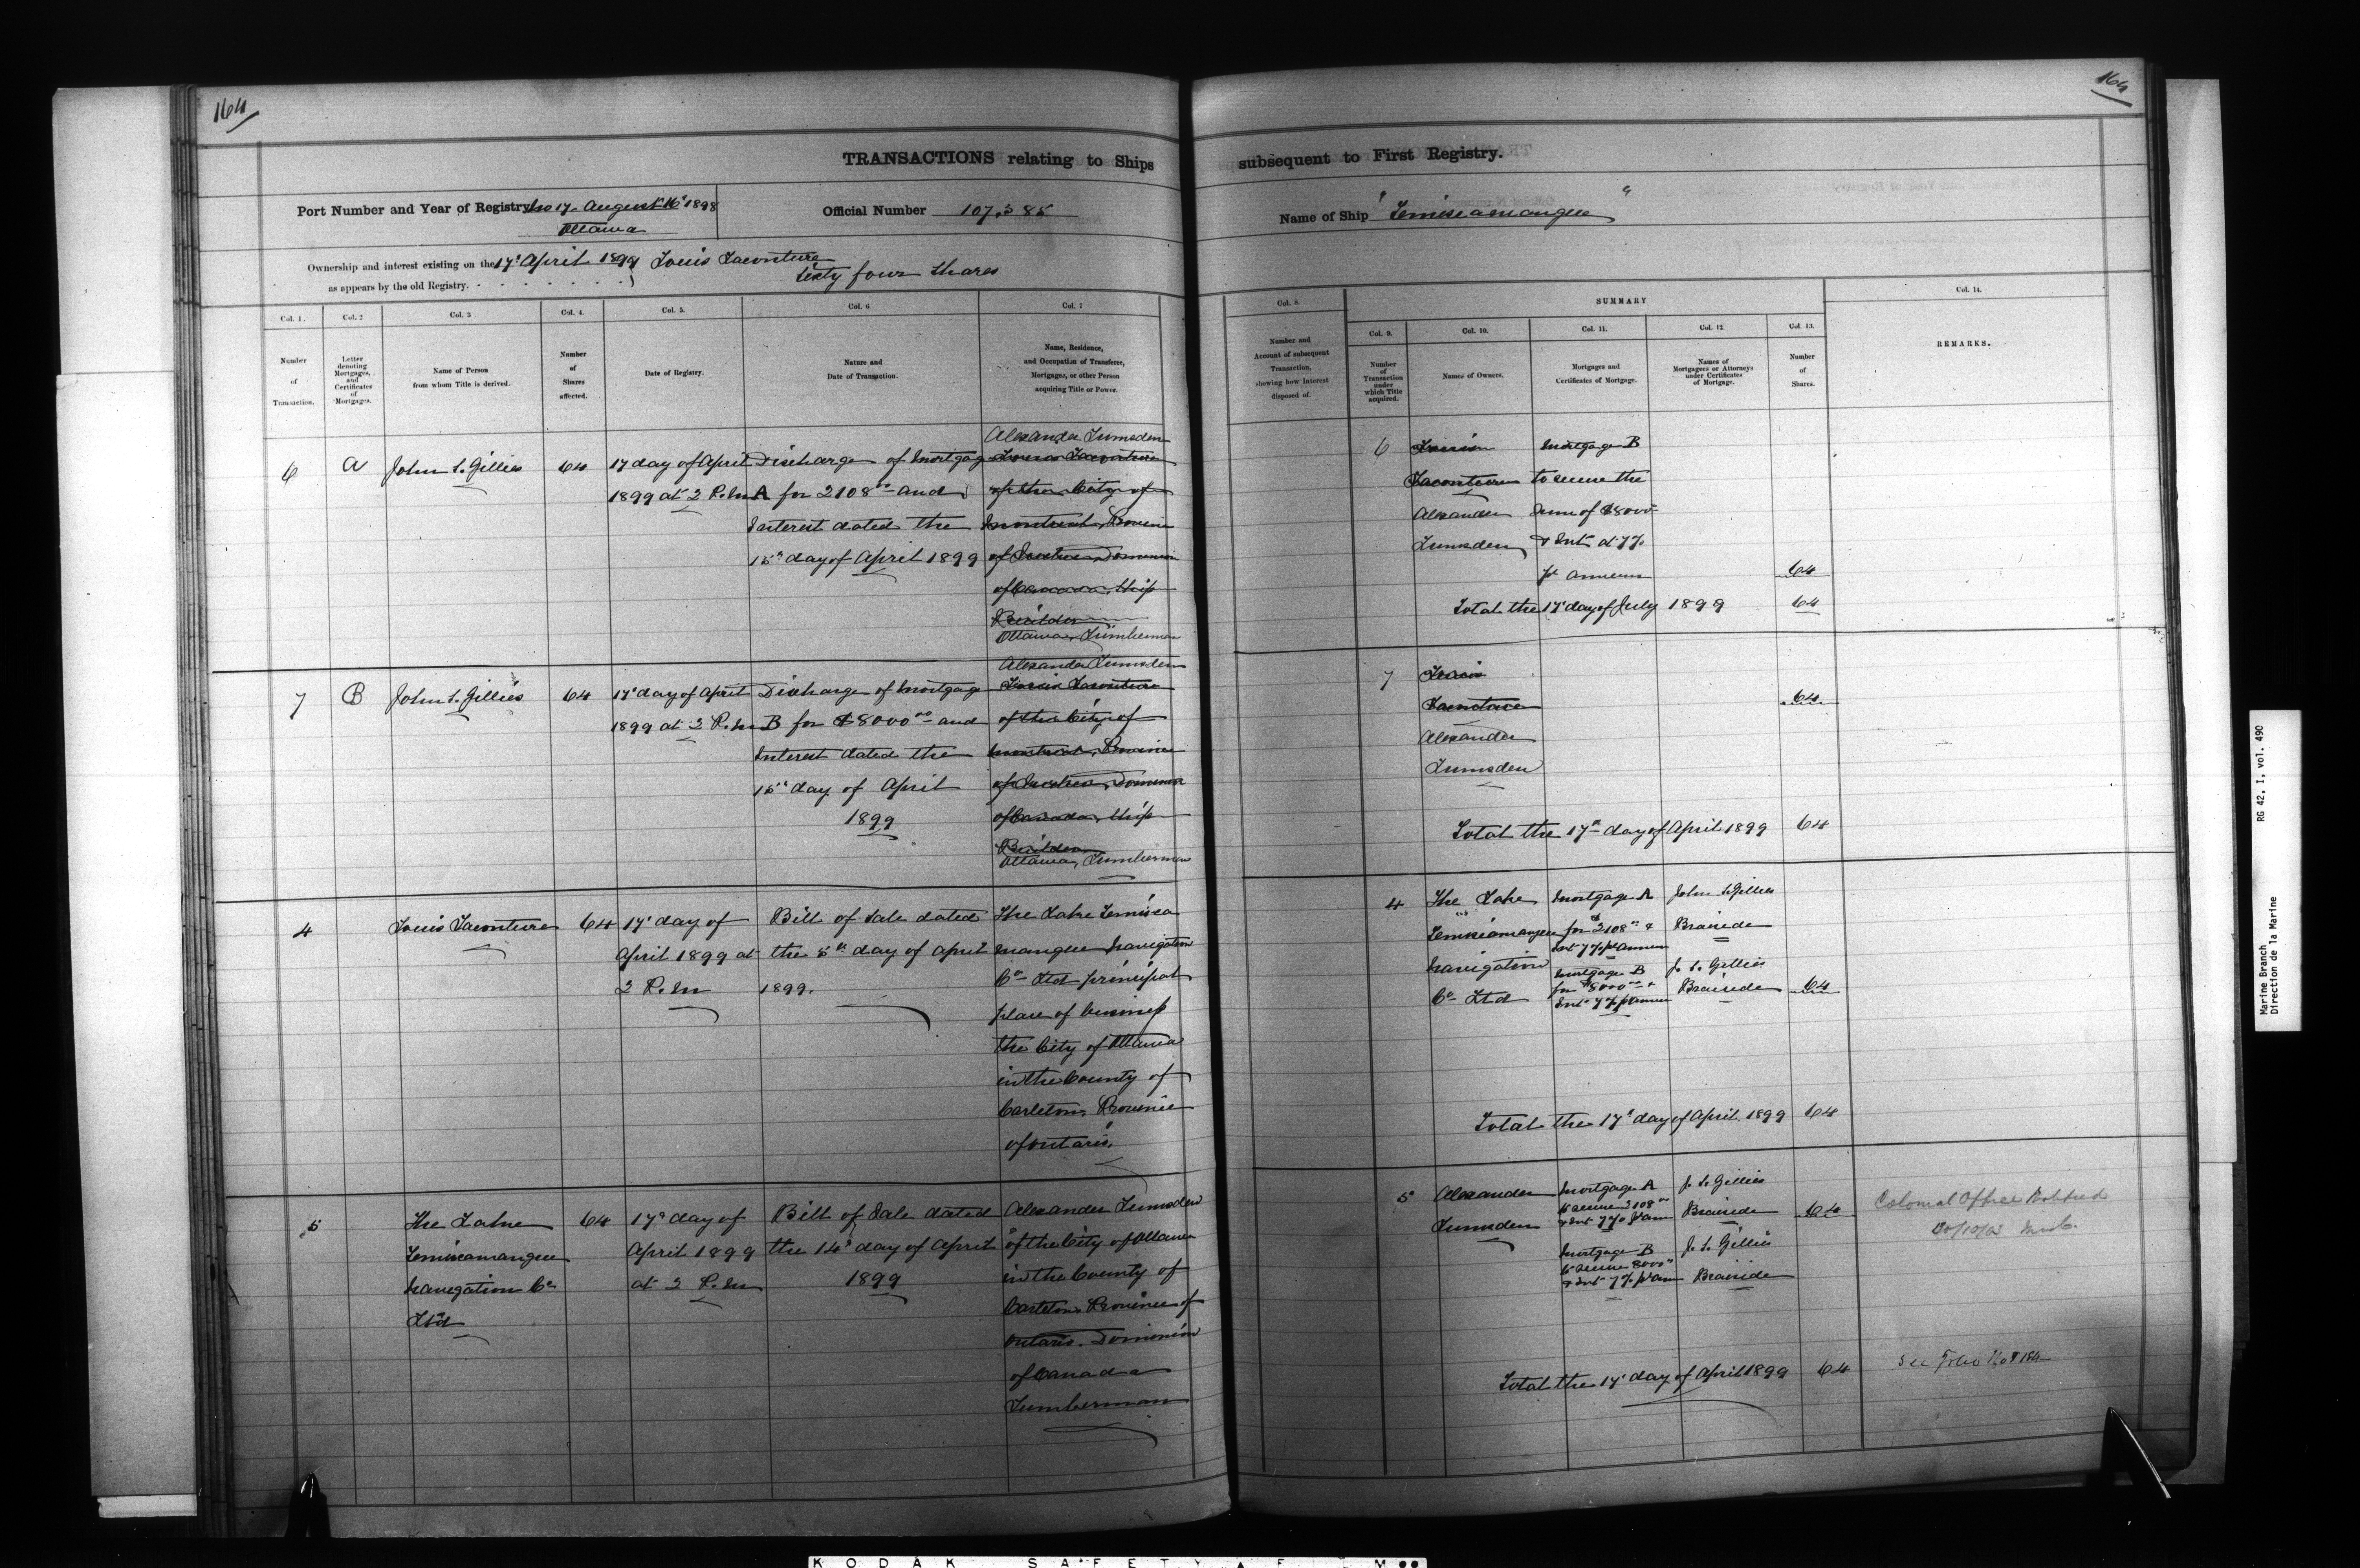 164
164
TRANSACTIONS relating to Ships
subsequent to First Registry.
Port Number and Year of Registry No 17 August 16 1898
Ottawa
Official Number 107,385
Name of Ship "Temiscamangue"
Ownership and interest existing on the 17 April 1899 Louis Laconture
as appears by the old Registry. Sixty four Shares
Col. 1.
Number
of
Transaction.
Col. 2
Letter
denoting
Mortgages,
and
Certificates
of
Mortgages.
Col. 3
Name of Person
from whom Title is derived.
Col. 4.
Number
of
Shares
affected.
Col. 5.
Date of Registry.
Col. 6
Nature and
Date of Transaction.
Col. 7
Name, Residence,
and Occupation of Transferee,
Mortgagee, or other Person
acquiring Title or Power.
Col. 8.
Number and
Account of subsequent
Transaction,
showing how Interest
disposed of.
SUMMARY
Col. 9.
Number
of
Transaction
under
which Title
acquired.
Col. 10.
Names of Owners.
Col. 11.
Mortgages and
Certificates of Mortgage.
Col. 12.
Names of
Mortgagees or Attorneys
under Certificates
of Mortgage.
Col. 13.
Number
of
Shares.
Col. 14.
REMARKS.
6
A
John S. Gillies
64
17 day of April
1899 at 2 P.M
Discharge of Mortgage
A for 2108 00 and
Interest dated the
15 day of April 1899
Alexander Lumsden
Louis Laconture
of the City of
Montreal, Province
of Quebec, Dominion
of Canada, Ship
Builder
Ottawa, Lumberman
6
Louis
Laconture
Alexander
Lumsden
Mortgage B
to secure the
sum of $8000
& Int at 7%
pr annum
64
Total the 17 day of July 1899 64
7
B
John S. Gillies
64
17 day of April
1899 at 2 P.M
Discharge of Mortgage
B for $8000 00 and
Interest dated the
15 day of April
1899
Alexander Lumsden
Louis Laconture
of the City of
Montreal, Province
of Quebec, Dominion
of Canada, Ship
Builder
Ottawa, Lumberman
7
Louis
Laconture
Alexander
Lumsden
64
Total the 17th day of April 1899 64
4
Louis Laconture
64
17 day of
April 1899 at
2 P.M
Bill of Sale dated
the 5th day of April
1899.
The Lake Temisca
mangue Navigation
Co Ltd principal
place of business
the City of Ottawa
in the County of
Carleton, Province
of Ontario.
4
The Lake
Temiscamangue
Navigation
Co Ltd
Mortgage A
for 2108 00 &
Int 7% pr annum
Mortgage B
for $8000 00 &
Int 7% pr annum
John S. Gillies
Braeside
J. S. Gillies
Braeside
64
Total the 17 day of April 1899 64
5
The Lake
Temiscamangue
Navigation Co
Ltd
64
17 day of
April 1899
at 2 P.M
Bill of Sale dated
the 14 day of April
1899
Alexander Lumsden
of the City of Ottawa
in the County of
Carleton Province of
Ontario. Dominion
of Canada
Lumberman
5
Alexander
Lumsden
Mortgage A
to secure 2108 00
& Int 7% pr ann
Mortgage B
to secure 8000
& Int 7% pr ann
J. S. Gillies
Braeside
J. S. Gillies
Braeside
64
Colonial Office Notified
Total the 17 day of April 1899 64
See Folio
Marine Branch
Direction de la Marine
RG 42, I, vol. 490
KODAK SAFETY FILM